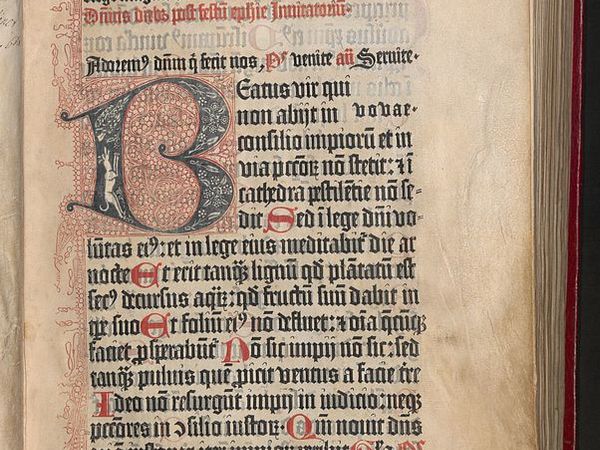 Dnīcis diebus post festū ephīe Inuitatoriū.
Adorem⁹ dūm q̄ fecit nos, P̄s venite an̄ Seruite.
BEatus vir qui
non abijt in vovae
consilio impiorū et in
via pccōꝝ nō stetit: ⁊ ī
cathedra pestilētie nō se-
dit, Sed ī lege dn̄i vo-
lūtas ei⁹: et in lege eius meditabit̄ die ac
nocte Et erit tanq̄ƺ lignū qd̄ plātatū est
sec⁹ decursus aqꝝ: qd̄ fructū suū dabit in
tꝑe suo Et foliū ei⁹ nō defluet: ⁊ oīa q̄cūqƺ
faciet ꝓsperabūt̄ Nō sic impij nō sic: sed
tanq̄ƺ puluis quē ꝓicit ventus a facie t̄re
Ideo nō resurgūt impij in iudicio: neqƺ
pctōres in ꝯsilio iustoꝝ. Qm̄ nouit dn̄s